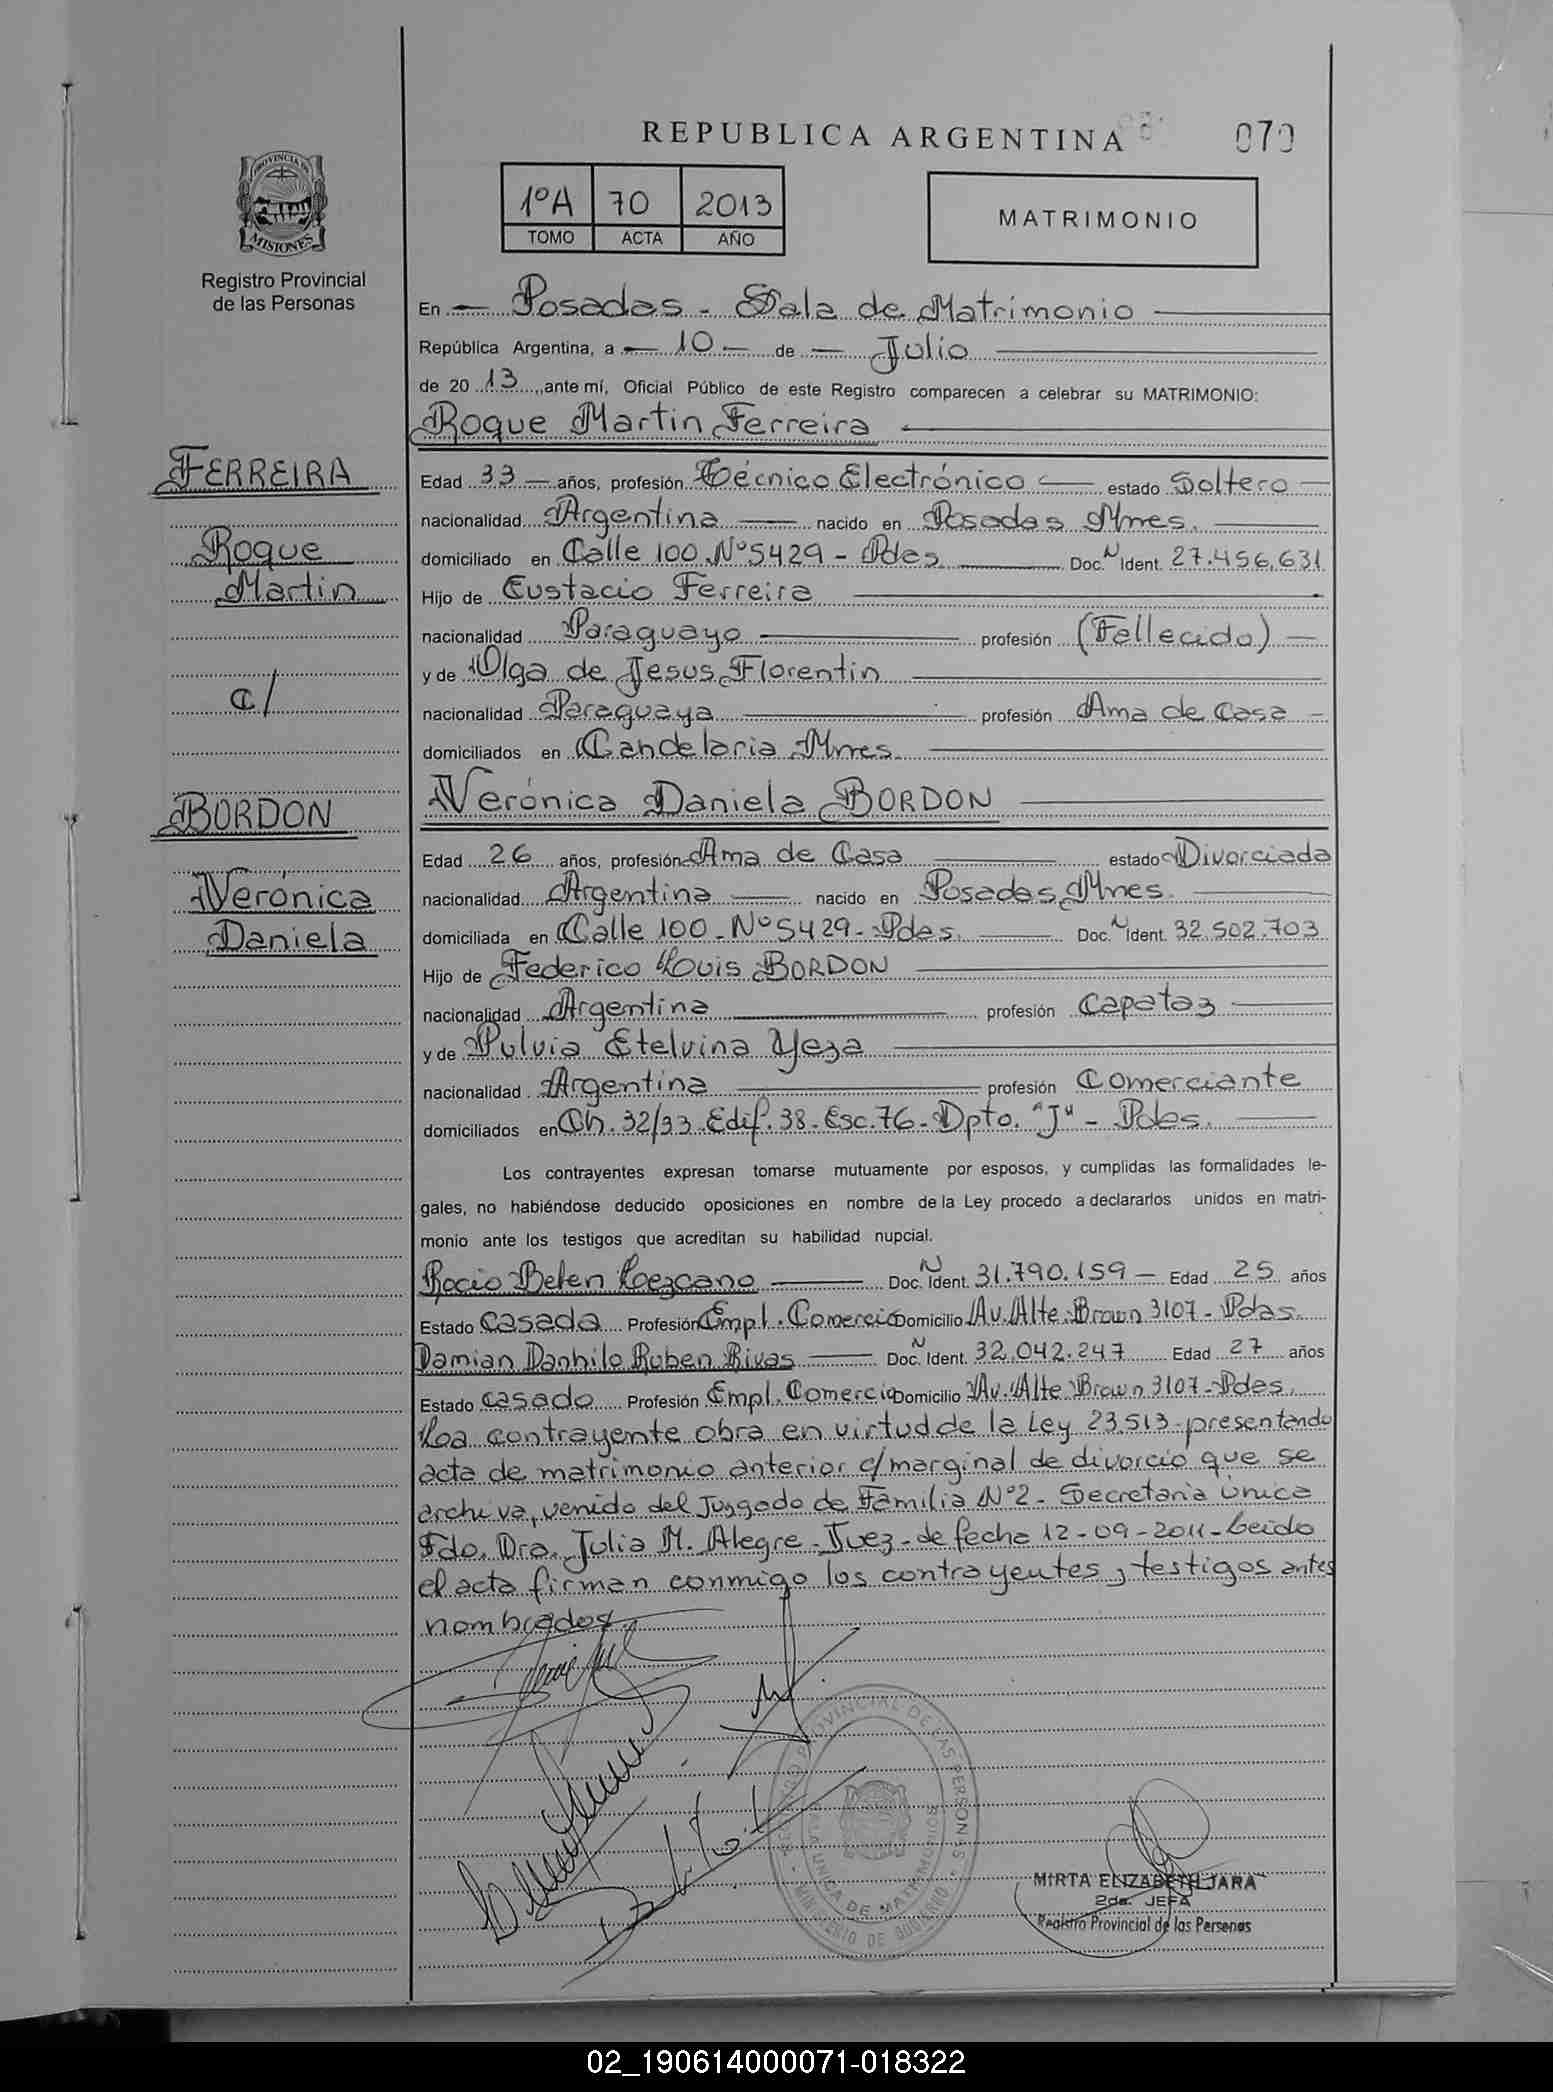 REPUBLICA ARGENTINA
070
PROVINCIA DE
MISIONES
Registro Provincial
de las Personas
1º A 70 2013
TOMO ACTA AÑO
MATRIMONIO
En Posadas - Sala de Matrimonio
República Argentina, a 10 de Julio
de 20 13, ante mí, Oficial Público de este Registro comparecen a celebrar su MATRIMONIO:
Roque Martin Ferreira
FERREIRA
Roque
Martin
c/
BORDON
Verónica
Daniela
Edad 33 años, profesión Técnico Electrónico estado Soltero
nacionalidad Argentina nacido en Posadas Mnes.
domiciliado en Calle 100 Nº 5429 - Pdas. Doc. N Ident. 27.456.631
Hijo de Eustacio Ferreira
nacionalidad Paraguayo profesión (Fallecido)
y de Olga de Jesus Florentin
nacionalidad Paraguaya profesión Ama de Casa
domiciliados en Candelaria Mnes.
Verónica Daniela BORDON
Edad 26 años, profesión Ama de Casa estado Divorciada
nacionalidad Argentina nacido en Posadas, Mnes.
domiciliada en Calle 100 - Nº 5429 - Pdas. Doc. N Ident. 32.502.703
Hijo de Federico Louis BORDON
nacionalidad Argentina profesión Capataz
y de Pulvia Etelvina Yeza
nacionalidad Argentina profesión Comerciante
domiciliados en Ch. 32/33 Edif. 38 - Esc. 76 - Dpto. "J" - Pdas.
Los contrayentes expresan tomarse mutuamente por esposos, y cumplidas las formalidades le-
gales, no habiéndose deducido oposiciones en nombre de la Ley procedo a declararlos unidos en matri-
monio ante los testigos que acreditan su habilidad nupcial.
Rocio Belen Lezcano Doc. N Ident. 31.790.159 - Edad 25 años
Estado Casada Profesión Empl. Comercio Domicilio Av. Alte. Brown 3107 - Pdas.
Damian Danhilo Ruben Rivas Doc. N Ident. 32.042.247 Edad 27 años
Estado Casado Profesión Empl. Comercio Domicilio Av. Alte Brown 3107 - Pdas.
Loa contrayente obra en virtud de la Ley 23.513 - presentando
acta de matrimonio anterior c/marginal de divorcio que se
archiva, venido del Juzgado de Familia Nº 2 - Secretaria Unica
Fdo. Dra. Julia M. Alegre - Juez - de fecha 12-09-2011 - Leido
el acta firman conmigo los contrayentes y testigos antes
nombrados
REGISTRO PROVINCIAL DE LAS PERSONAS
SALA UNICA DE MATRIMONIOS
MINISTERIO DE GOBIERNO
MIRTA ELIZABETH JARA
2da. JEFA
Registro Provincial de las Personas
02_190614000071-018322